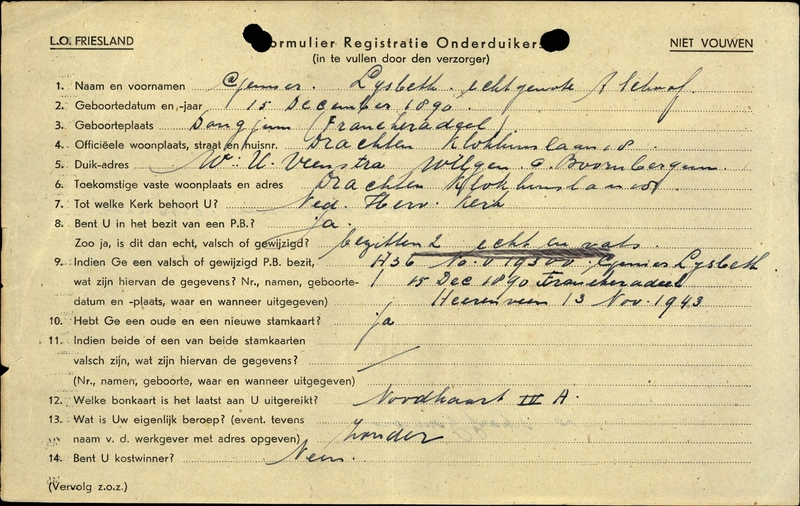 L.O. FRIESLAND
Formulier Registratie Onderduikers
NIET VOUWEN
(in te vullen door den verzorger)
1. Naam en voornamen Lysbeth. echtgenote
2. Geboortedatum en -jaar 15 December 1890.
3. Geboorteplaats Dongjum (Franekeradeel)
4. Officiëele woonplaats, straat en huisnr. Drachten
5. Duik-adres W. U. Veenstra Wilgen a Boornbergum
6. Toekomstige vaste woonplaats en adres Drachten
7. Tot welke Kerk behoort U? Ned. Herv. Kerk
8. Bent U in het bezit van een P.B.? ja.
Zoo ja, is dit dan echt, valsch of gewijzigd? bezitten 2 echt en vals
9. Indien Ge een valsch of gewijzigd P.B. bezit, H36 No. Lysbeth
wat zijn hiervan de gegevens? Nr., namen, geboorte- 15 Dec 1890 Franekeradeel
datum en -plaats, waar en wanneer uitgegeven) Heerenveen 13 Nov. 1943
10. Hebt Ge een oude en een nieuwe stamkaart? ja
11. Indien beide of een van beide stamkaarten
valsch zijn, wat zijn hiervan de gegevens?
(Nr., namen, geboorte, waar en wanneer uitgegeven)
12. Welke bonkaart is het laatst aan U uitgereikt? Noodkaart IV A.
13. Wat is Uw eigenlijk beroep? (event. tevens
naam v. d. werkgever met adres opgeven) Zonder
14. Bent U kostwinner? Neen.
(Vervolg z.o.z.)